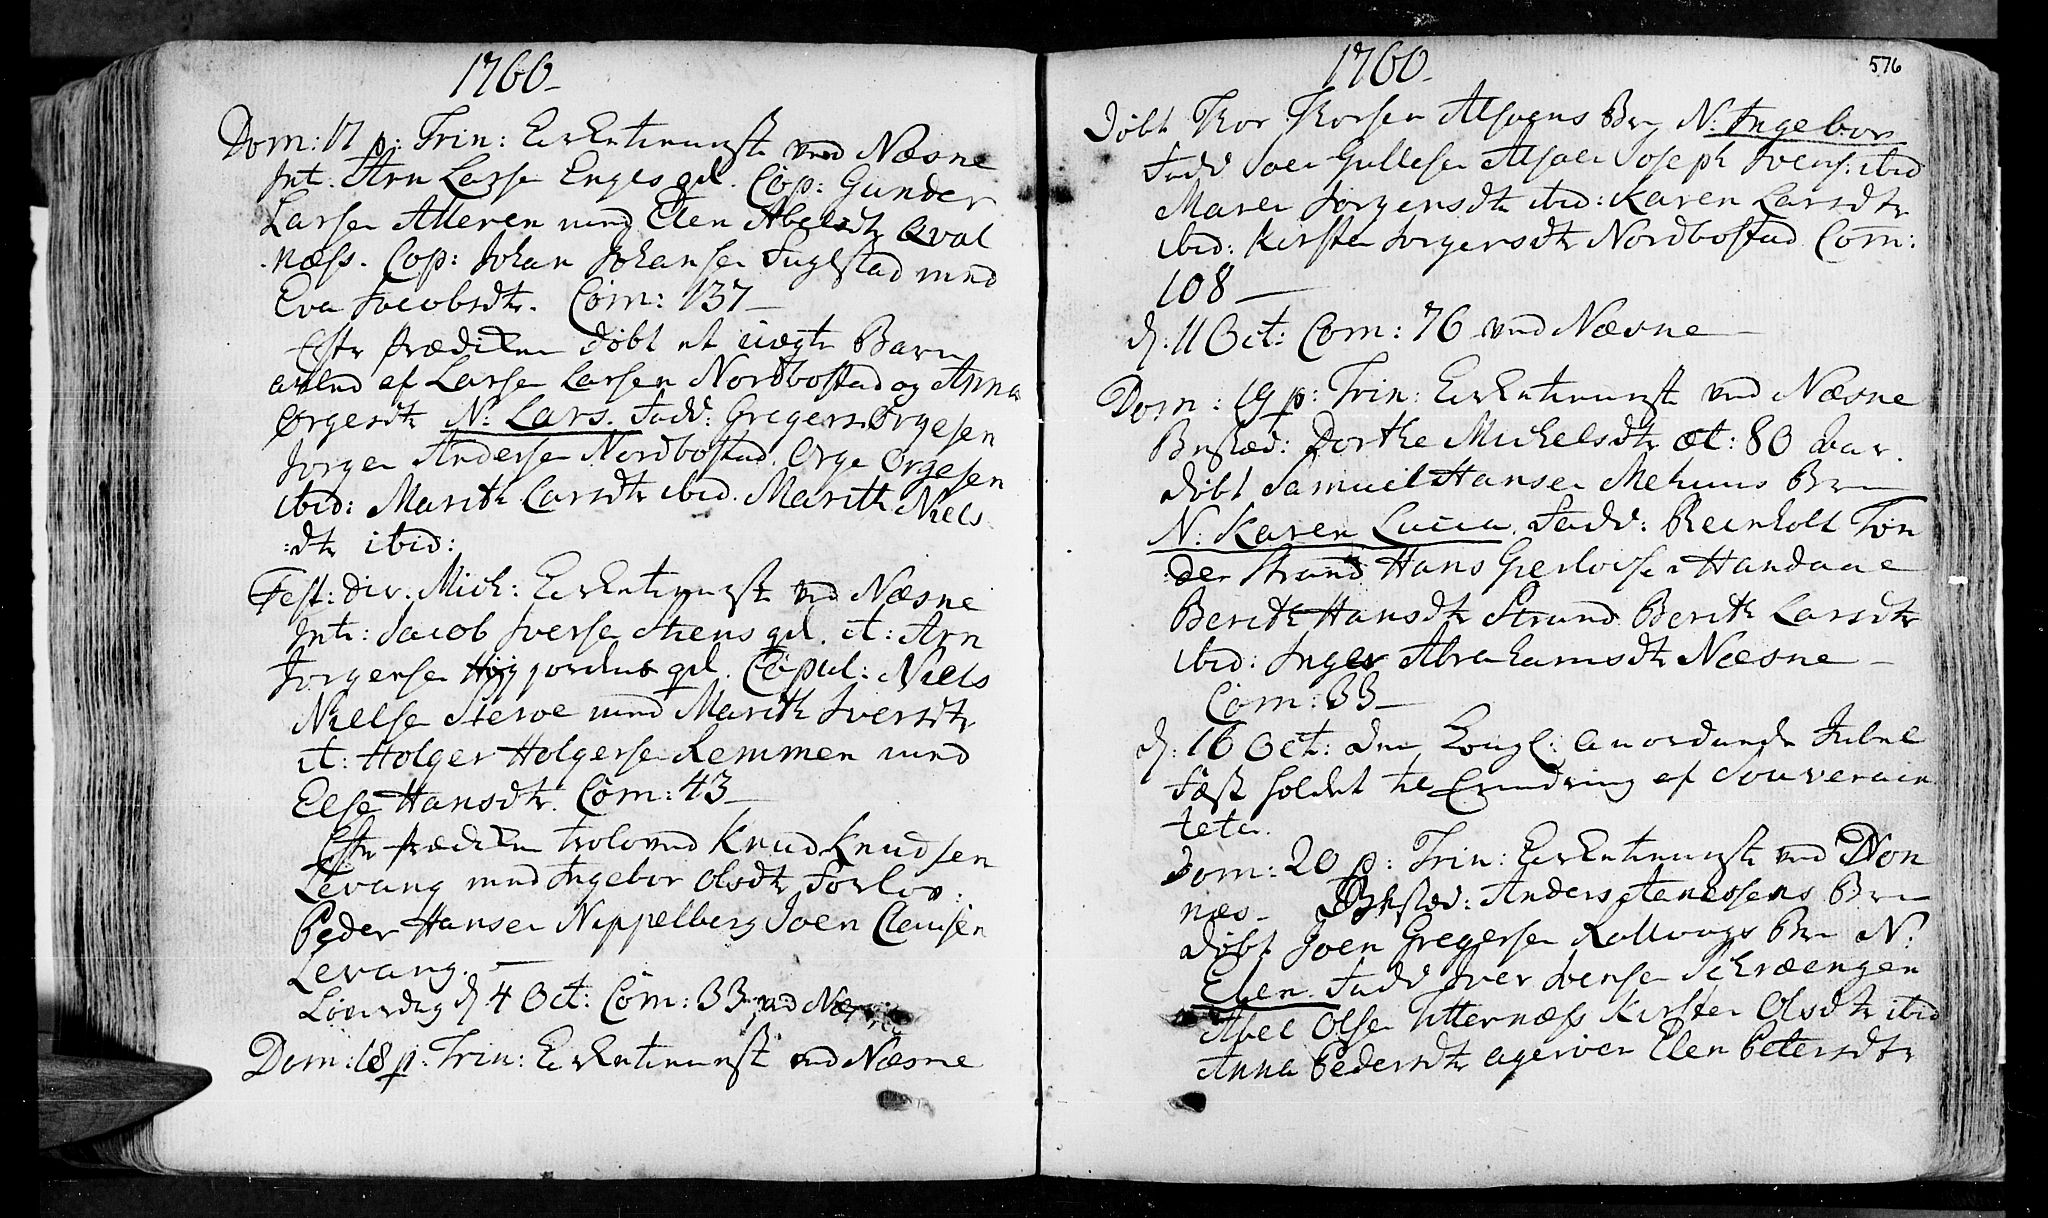 1760
Dom: 17 p: Trin: Kirketienneste ved Næsne
Int. Arn Larse Enges gel. Cop: Gunder
Larsen Alteren med Elen Abelsdtr Qval
næss. Cop: Johan Johansen Fuglstad med
Eva Jacobsdtr. Com: 137
Eftr prædiken döbt et uægte Barn
avlend af Larse Larsen Nordbostad og Anna
Örgesdtr N: Lars. Fadd: Gregers Örgesen
Jörgen Andersen Nordbostad Örge Örgesen
ibid: Marith Larsdtr ibid. Marith Niels
:dtr ibid:
Fest: div. Mich: Kirketienneste ved Næsne
Intr: Jacob Iverse Steens gel. it: Arn
Jörgense gel. Copul: Niels
Nielse med Marith Iversdtr
it: Holger Holgerse Remmen med
Else Hansdtr. Com: 43
Eftr prædiken troloved Knud Knudsen
Levang med Ingebor Olsdtr Forlov:
Peder Hansen Nippelberg Joen Clemsen
Levang.
Löverdag d 4 Oct: Com: 33 ved Næsne
Dom: 18 p: Trin: Kirketienneste ved Næsne
1760
576
Döbt Thor Thorsen Alsvens Br N: Ingebor
Fadd Joen Gullesen Joseph Ivers: ibid
Maren Jörgensdtr ibid: Karen Larsdtr
ibid: Kirsten Jörgensdtr Nordbostad Com:
108
d: 11 Oct: Com: 76 ved Næsne
Dom: 19 p: Trin: Kirketienneste ved Næsne
Begraved: Dorthe Michelsdtr æt: 80 Aar.
döbt Samuel Hansen Br
N: Karen Lucia. Fadd: Reinholt Tön
der Strand Hans Handaae
Berith Hansdtr Strand Berith Larsdtr
ibid: Inger Abrahamsdtr Næsne
Com: 33
d: 16 Oct: den Kongl: anordnede Jubel
Fæst holdet til Erindring af Souverain
teten.
Dom: 20 p: Trin: Kirketienneste ved Dön
næs Anders Br
döbt Joen Gregersen Br N:
Elen. Fadd Iver Iversen
Abel Olsen Utternæss Kirsten Olsdtr ibid
Anna Pedersdtr Elen Petersdtr